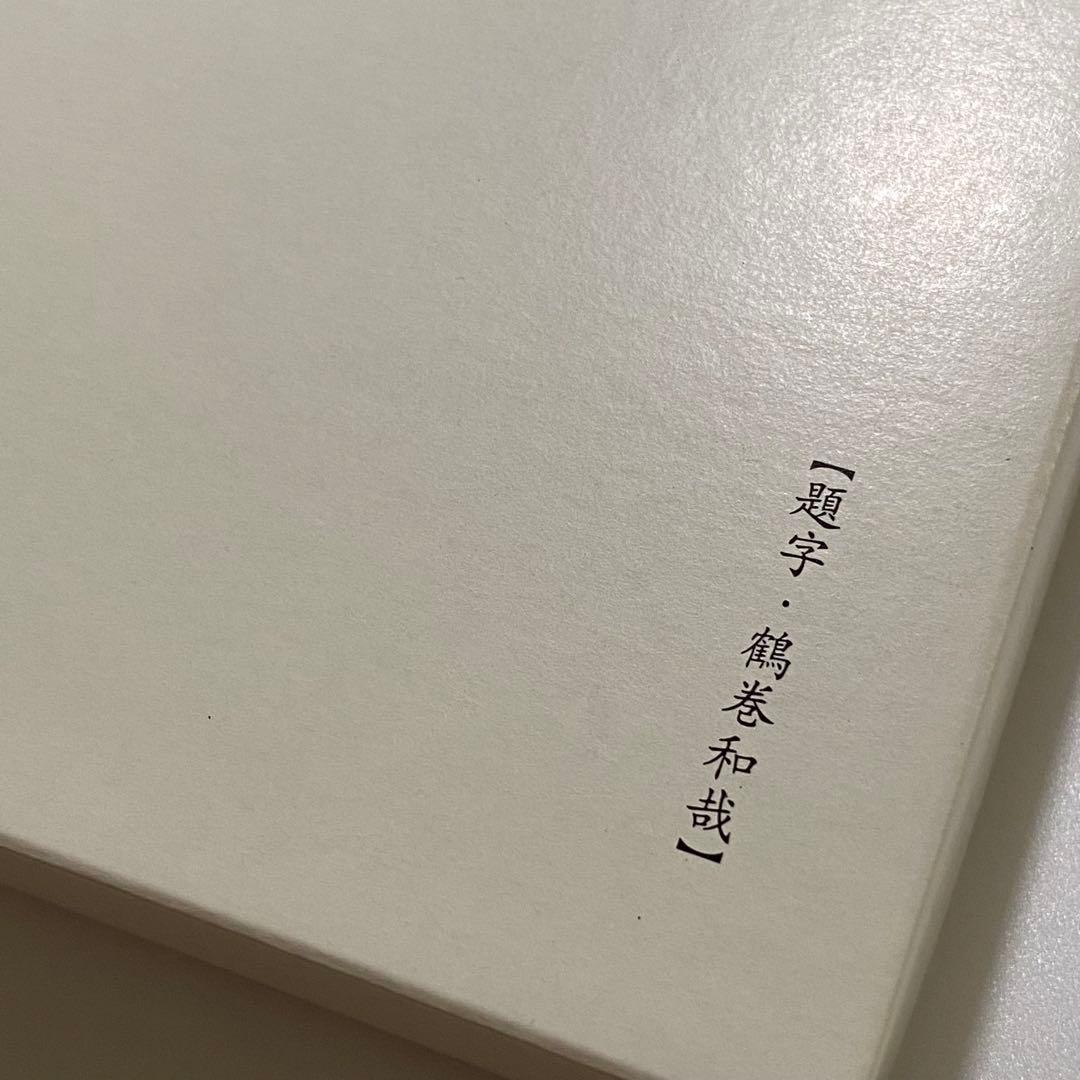 【題字・鶴巻和哉】